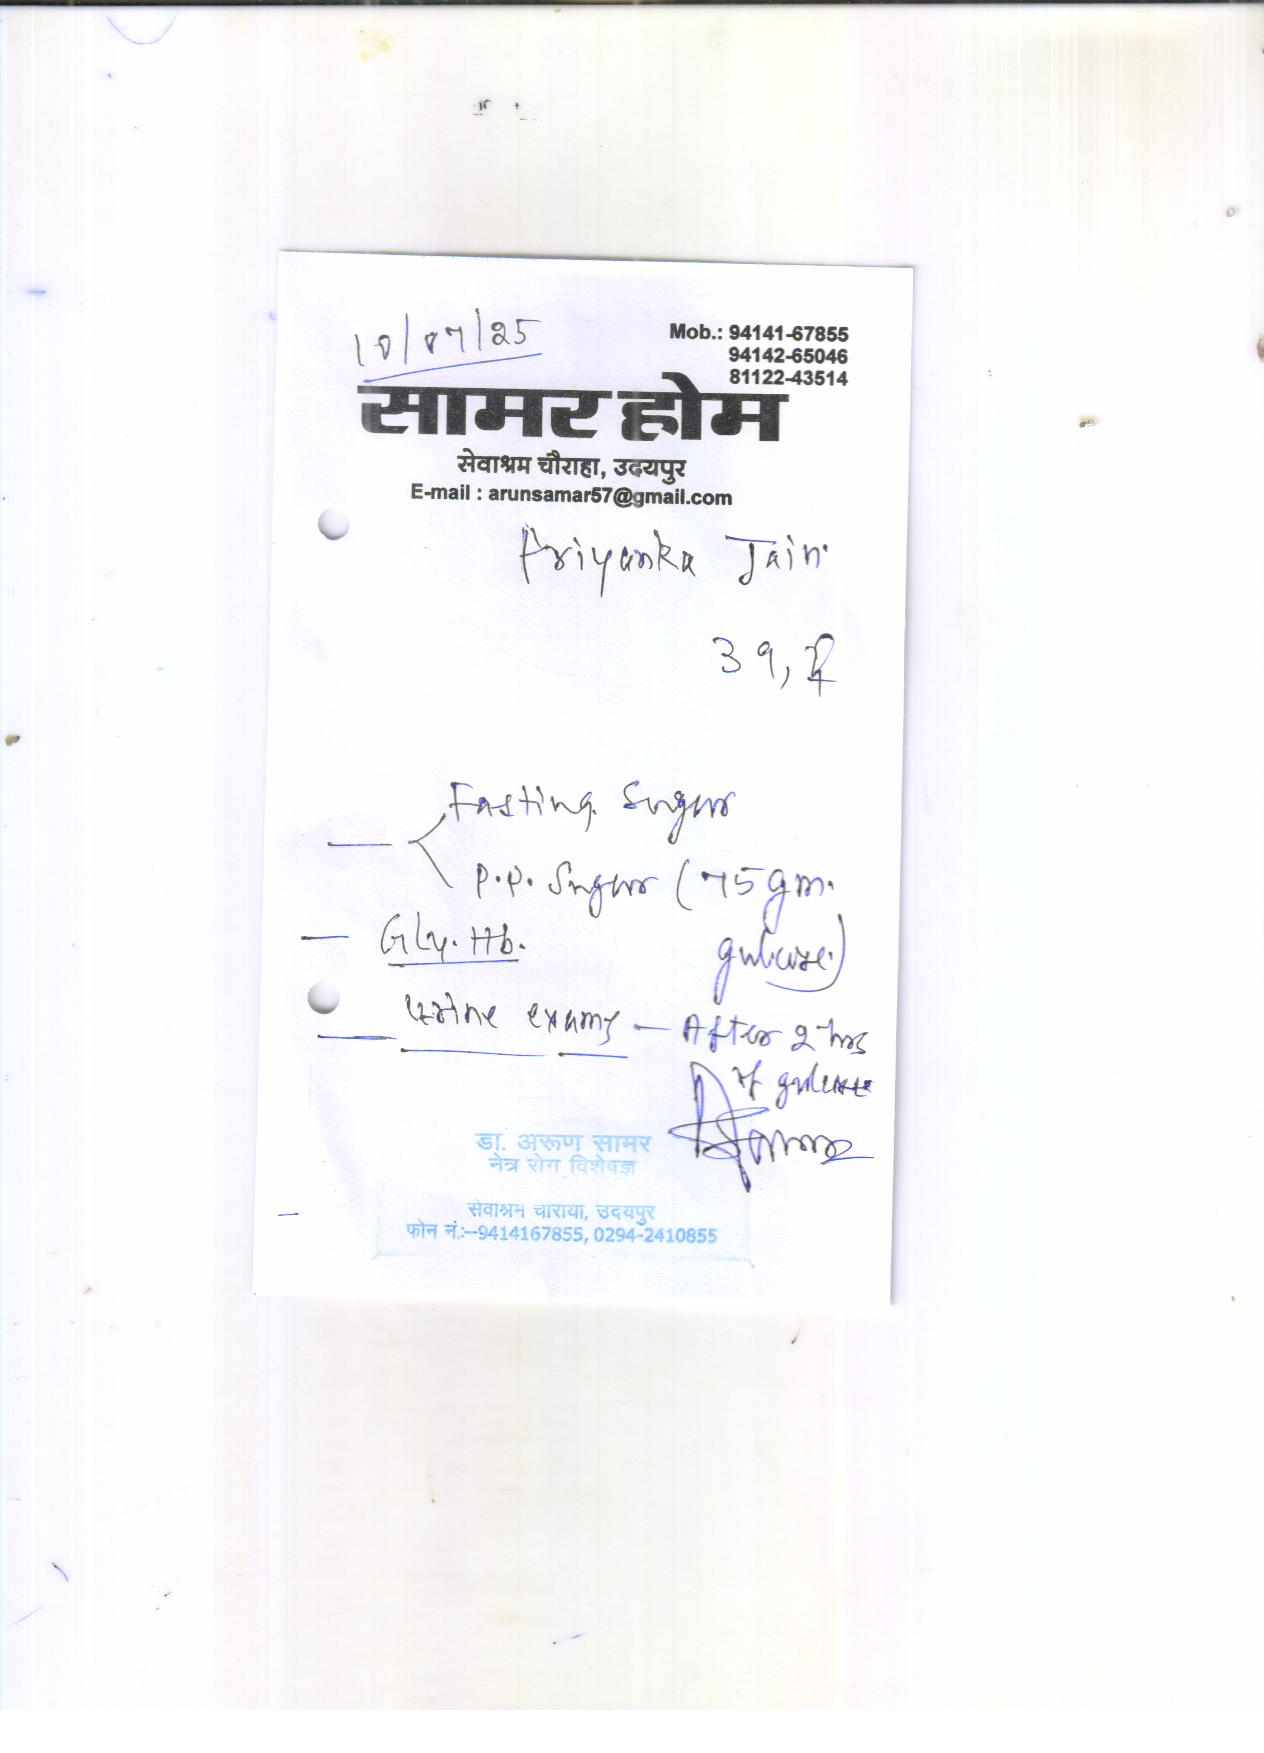 10/07/25
Mob.: 94141-67855
94142-65046
81122-43514
सामर होम
सेवाश्रम चौराहा, उदयपुर
E-mail : arunsamar57@gmail.com
Priyanka Jain
39, F
Fasting Sugar
P.P. Sugar (75 gm.
glucose)
Gly. Hb.
Urine exams — After 2 hrs
of glucose
डा. अरूण सामर
नेत्र रोग विशेषज्ञ
सेवाश्रम चाराया, उदयपुर
फोन नं.:–9414167855, 0294-2410855